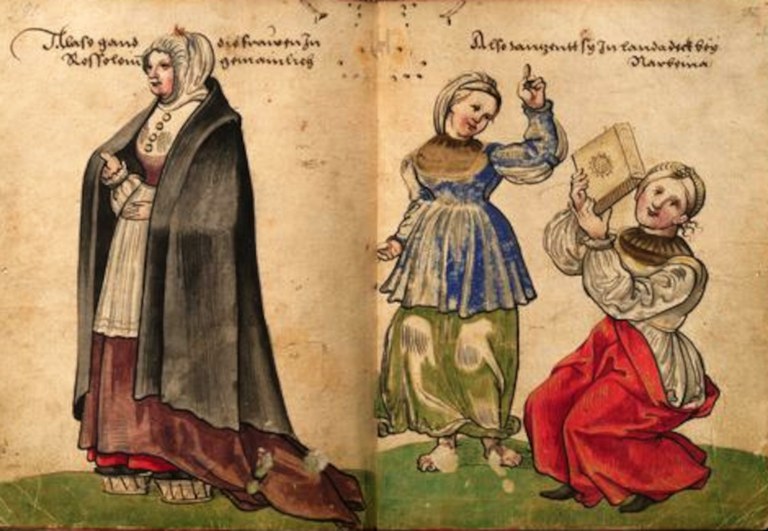 Allso gand die frawen Jn
Rossoloni gemainlich
Also tanzentt sy Jn landadeck bey
Narbona